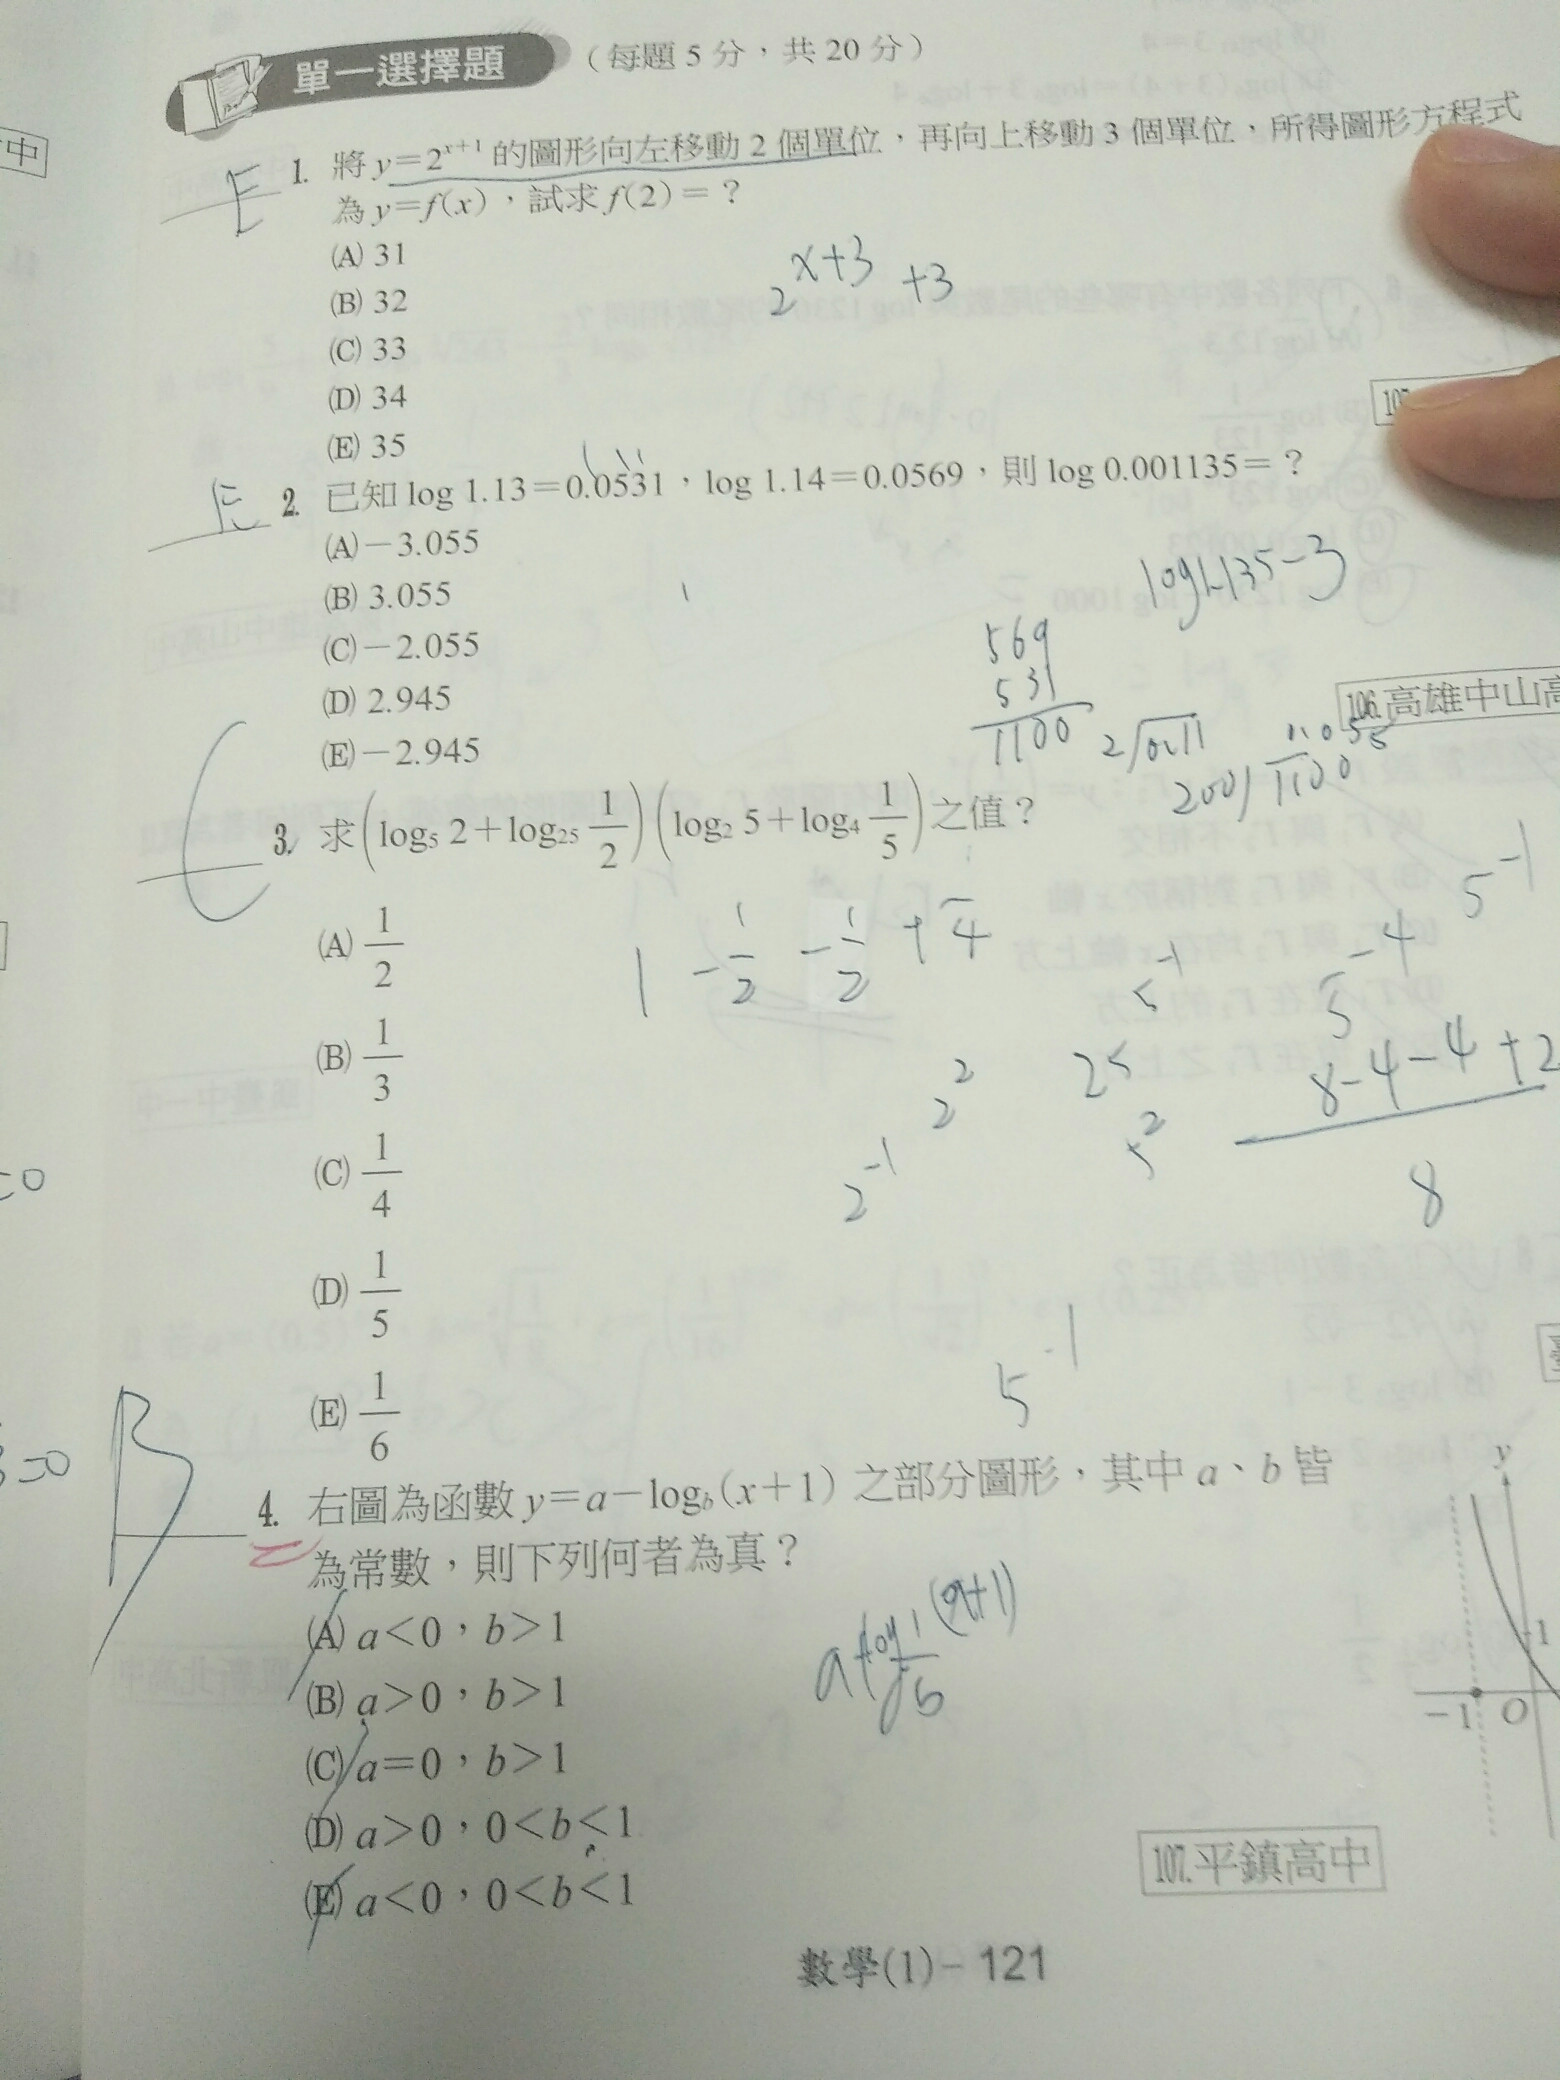 單一選擇題 (每題5分,共20分)
E 1. 將y=2^{x+1}的圖形向左移動2個單位,再向上移動3個單位,所得圖形方程式
為y=f(x),試求f(2)=?
(A) 31
2^{x+3} +3
(B) 32
(C) 33
(D) 34
(E) 35
E 2. 已知log 1.13=0.0531,log 1.14=0.0569,則log 0.001135=?
(A)-3.055
(B) 3.055
(C)-2.055
(D) 2.945
(E)-2.945
log1.135-3
569
531
1100
106.高雄中山高
C 3. 求(log₅ 2+log₂₅ 1/2)(log₂ 5+log₄ 1/5)之值?
(A) 1/2
(B) 1/3
(C) 1/4
(D) 1/5
(E) 1/6
1 -1/2 -1/2 +1/4
5^{-1}
5^{-4}
5^{-1}
2^2
25
5^2
2^{-1}
8-4-4+2
8
5^{-1}
B 4. 右圖為函數y=a-log_b(x+1)之部分圖形,其中a、b皆
為常數,則下列何者為真?
(A) a<0,b>1
(B) a>0,b>1
(C) a=0,b>1
(D) a>0,0<b<1
(E) a<0,0<b<1
y
1
-1 O
107.平鎮高中
數學(1)-121